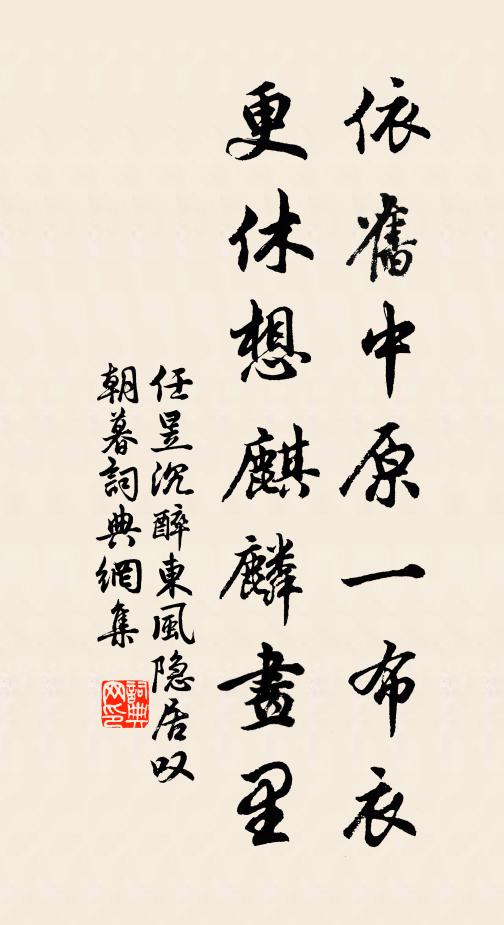 依舊中原一布衣
更休想麒麟畫里
任昱沉醉東風隐居叹
朝暮詞典網集
詞典网印